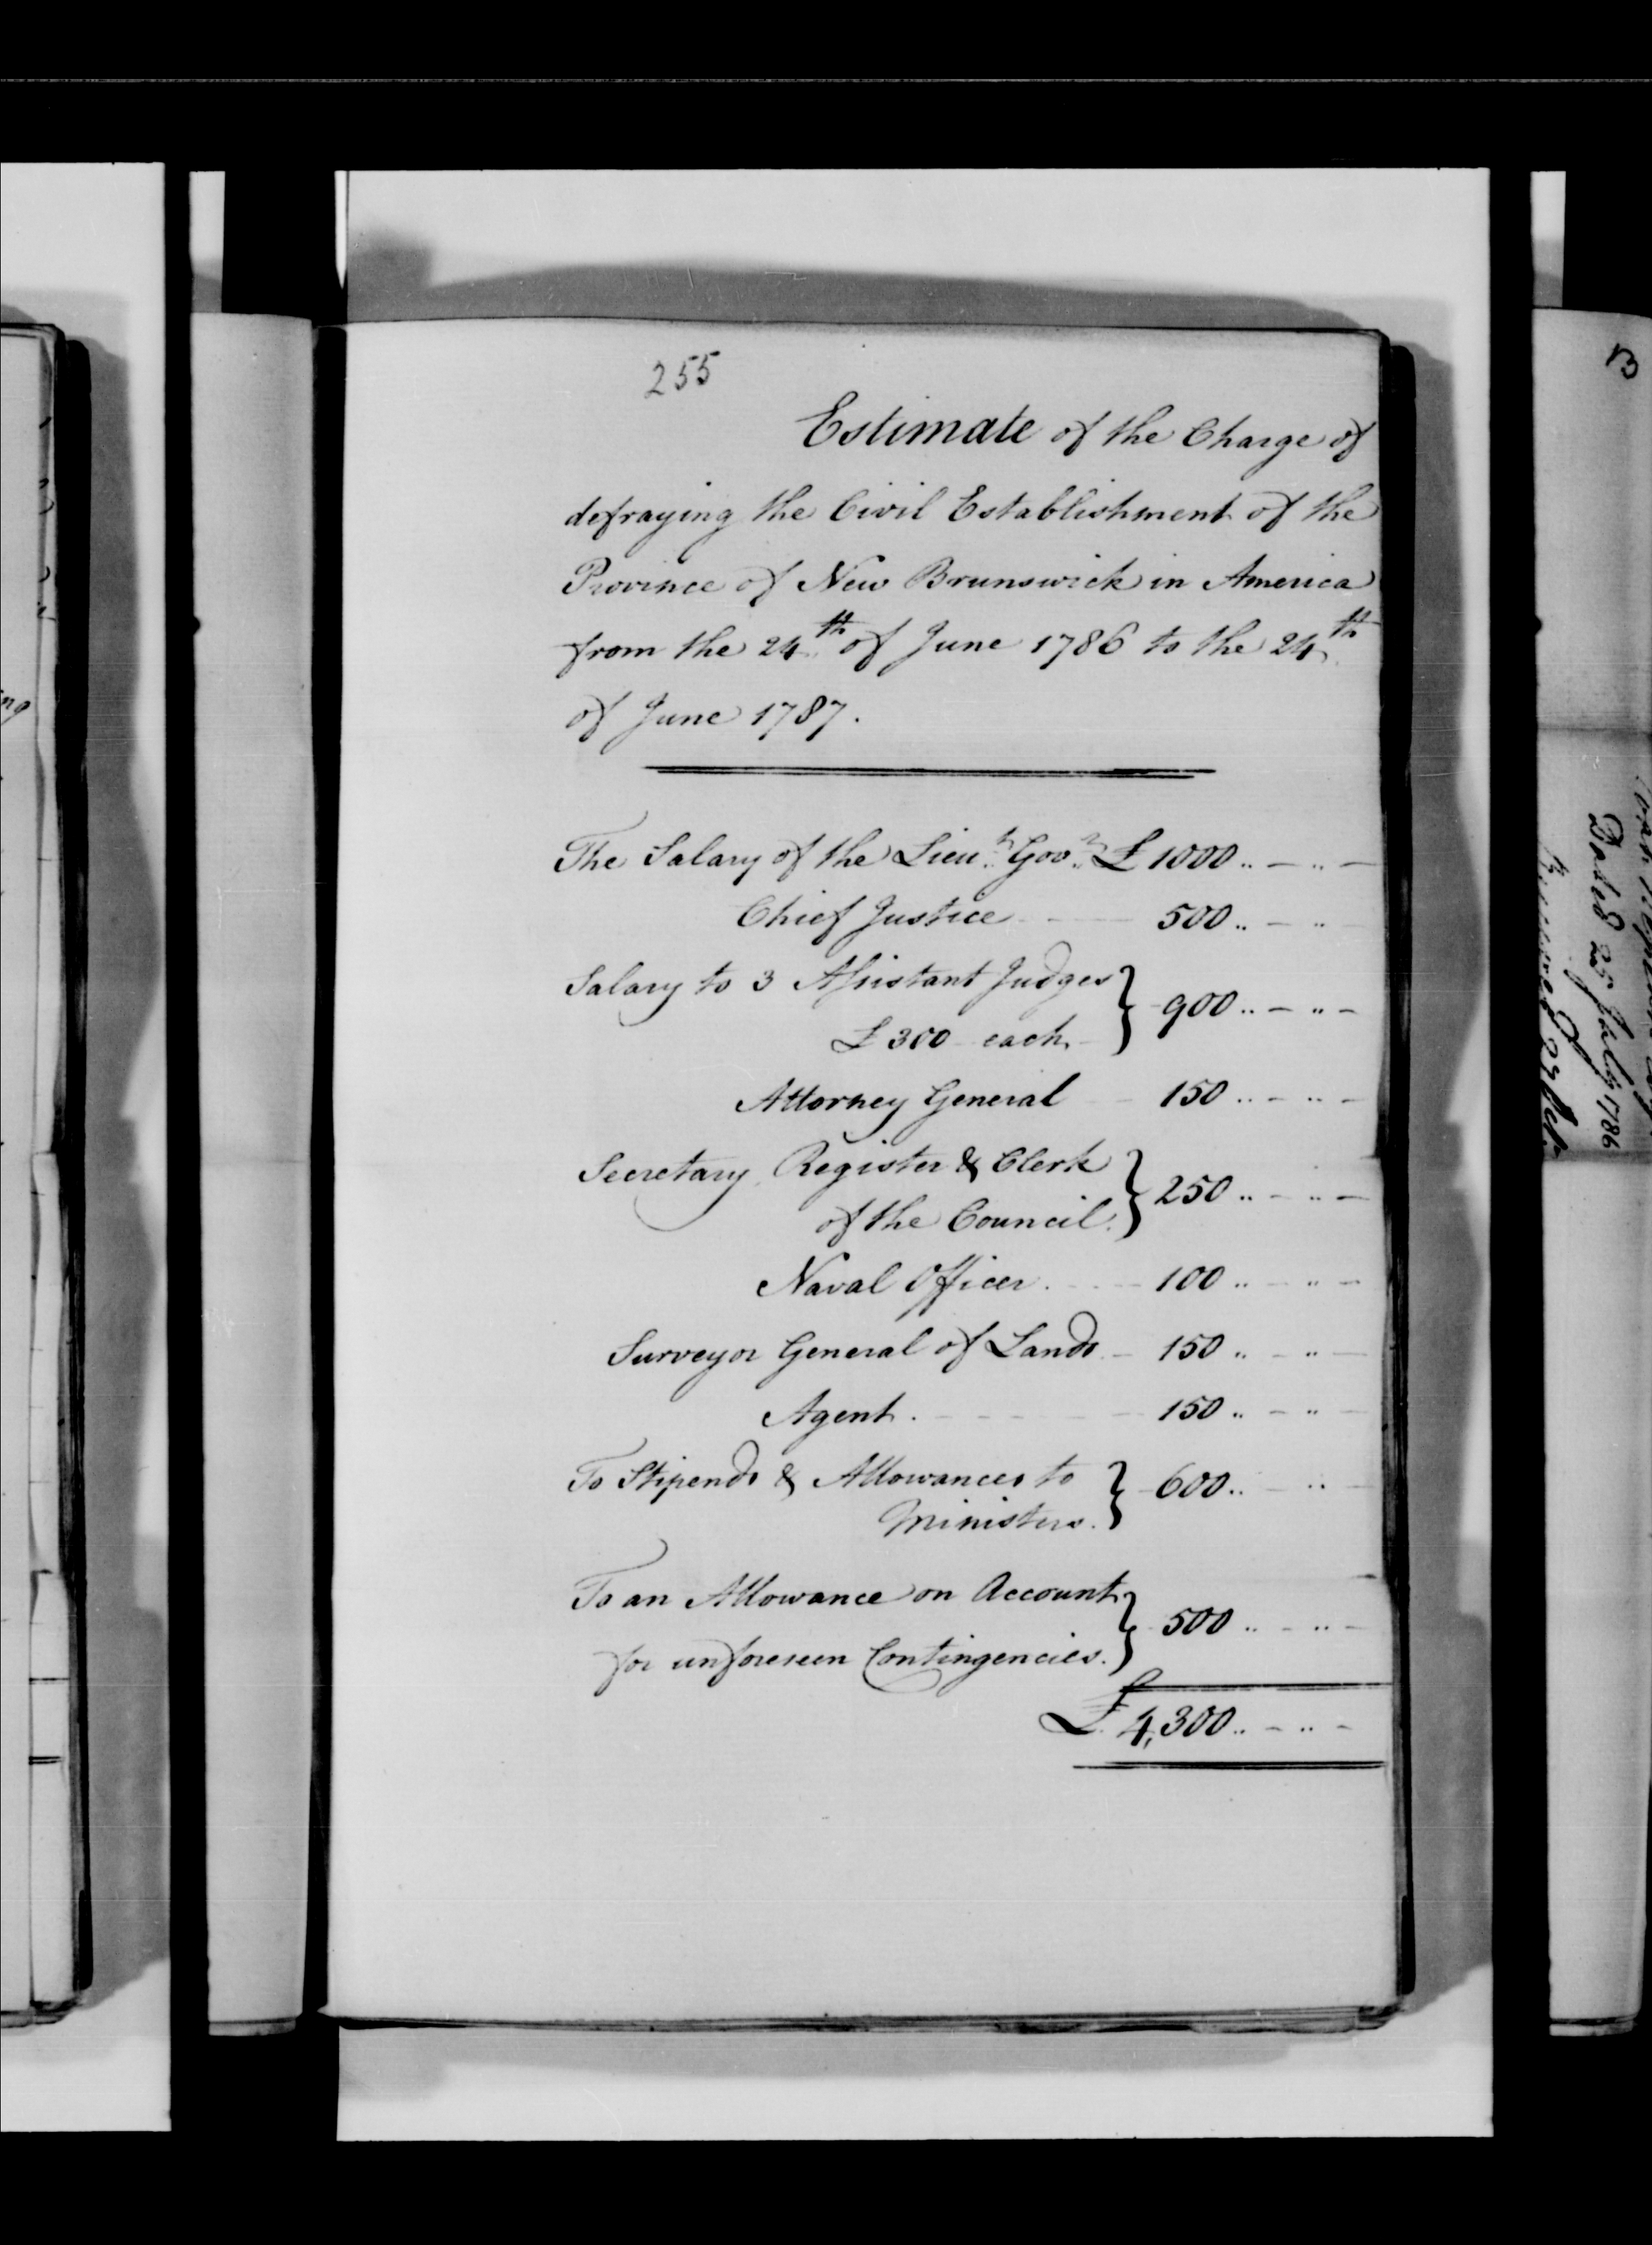 255
Estimate of the Charge of
defraying the Civil Establishment of the
Province of New Brunswick in America
from the 24th of June 1786 to the 24th
of June 1787.
The Salary of the Lieut. Govr. £ 1000 .. — .. —
Chief Justice - - - 500 .. — .. —
Salary to 3 Assistant Judges
£ 300 each } 900 .. — .. —
Attorney General - 150 .. — .. —
Secretary Register & Clerk
of the Council. } 250 .. — .. —
Naval Officer. - - - 100 .. — .. —
Surveyor General of Lands - 150 .. — .. —
Agent. - - - - 150 .. — .. —
To Stipends & Allowances to
Ministers. } 600 .. — .. —
To an Allowance on Account
for unforeseen Contingencies. } 500 .. — .. —
£ 4,300 .. — .. —
ng
3
Dated 25 July 1786